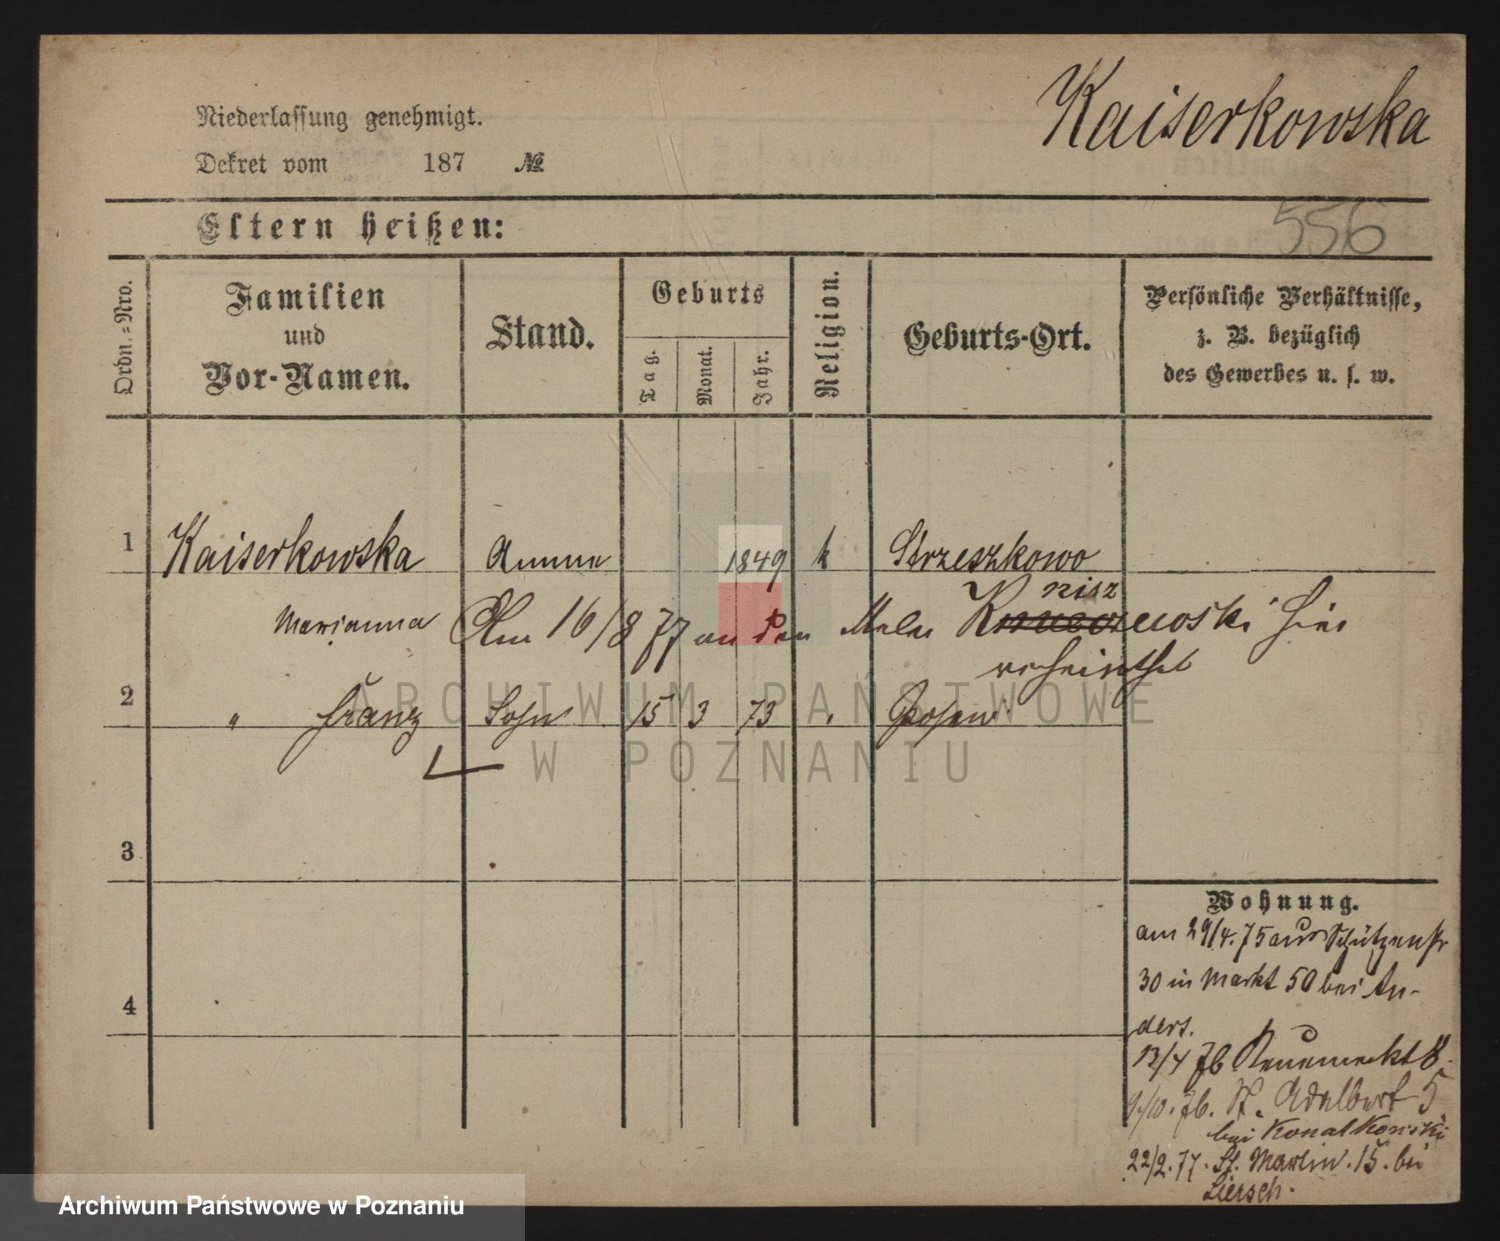 Kaiserkowska
Niederlassung genehmigt.
Dekret vom 187 №
Eltern heißen:
556
Ordn.=Nro.
Familien
und
Vor-Namen.
Stand.
Geburts
Tag.
Monat.
Jahr.
Religion.
Geburts-Ort.
Persönliche Verhältnisse,
z. B. bezüglich
des Gewerbes u. s. w.
1 Kaiserkowska Amme 1849 k Strzeszkowo
Marianna Am 16/8 77 an den Maler nisz
hier
verheirathet
2 " Franz Sohn 15 3 73 " Posen
3
4
Wohnung.
am 29/4. 75 aus Schützenstr
30 in Markt 50 bei An-
ders.
13/4 76 Neuemarkt 8.
9/10. 76. St. Adalbert 5
bei Konatkowski
22/2. 77. St. Martin. 15. bei
Liersch.
ARCHIWUM PAŃSTWOWE
W POZNANIU
Archiwum Państwowe w Poznaniu